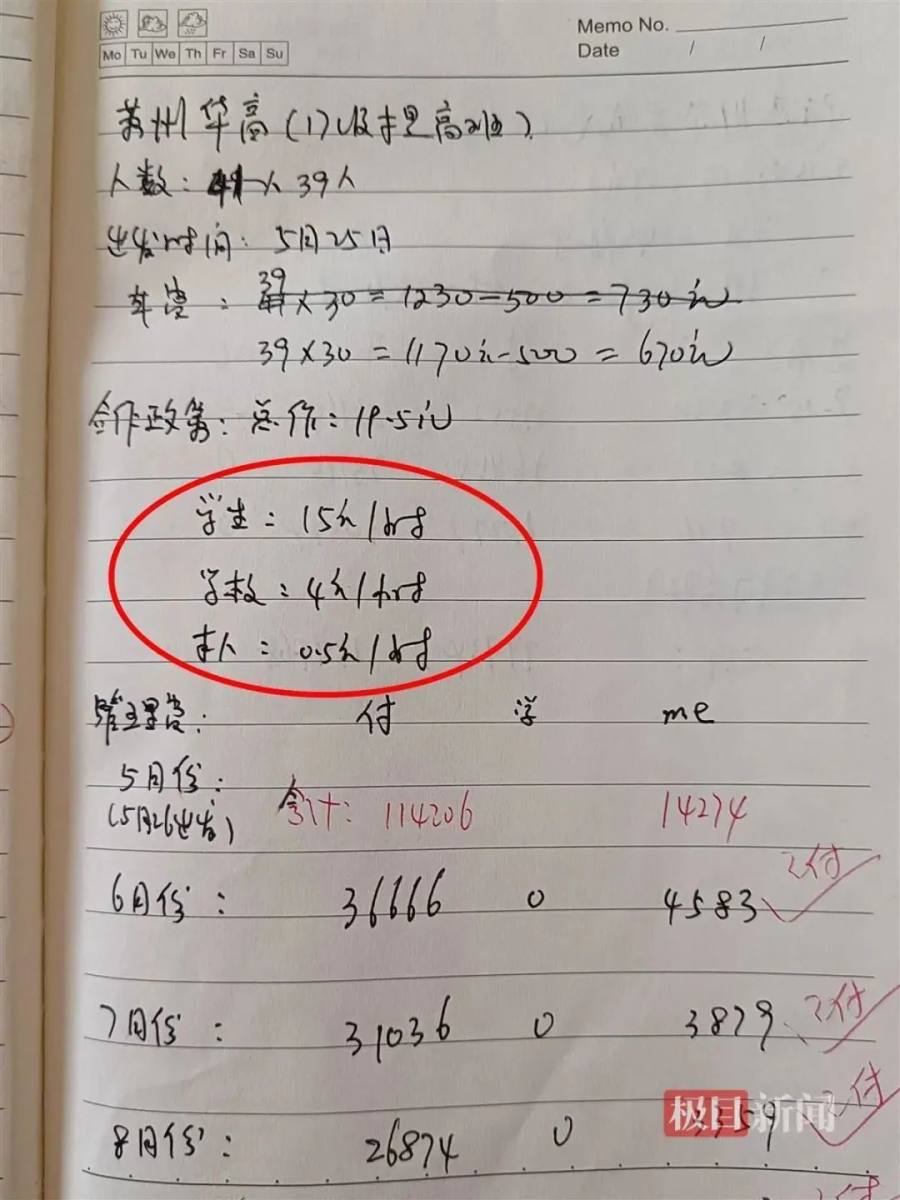 Memo No.
Mo Tu We Th Fr Sa Su
Date / /
苏州华高(17级提高班)
人数: 41人 39人
出发时间: 5月25日
车费: 39 41×30=1230-500=730元
39×30=1170元-500=670元
合作政策: 总价: 19.5元
学生: 15元/小时
学校: 4元/小时
本人: 0.5元/小时
管理费: 付 学 me
5月份:
(5月26出发) 合计: 114206 14274
6月份: 36666 0 4583 已付
7月份: 31036 0 3879 已付
8月份: 26874 0 3359 已付
极目新闻